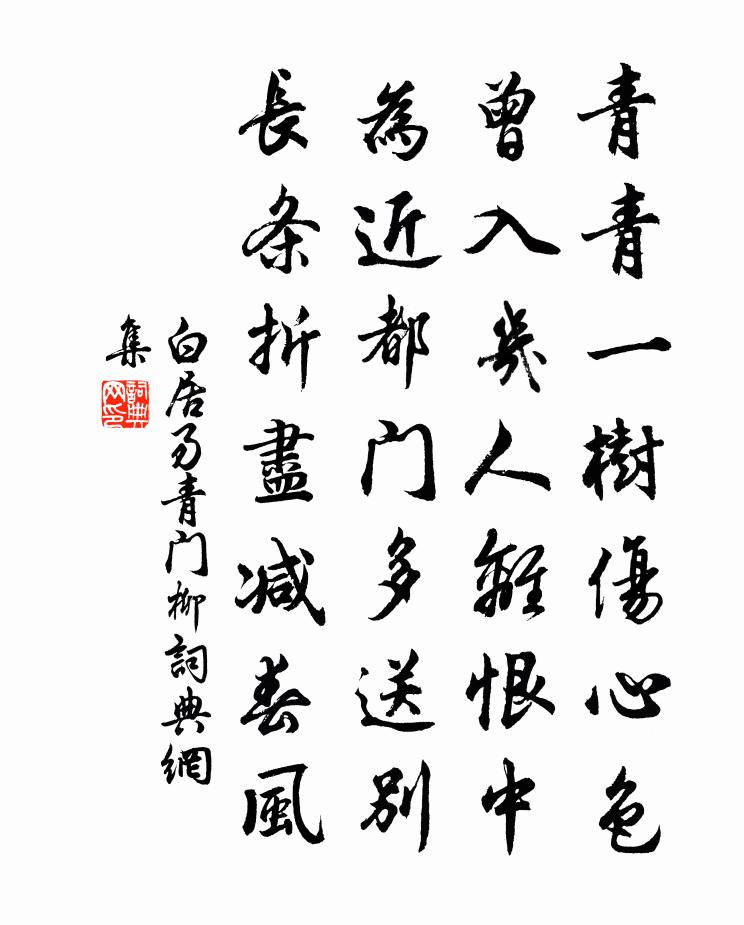 青青一樹傷心色
曾入幾人離恨中
為近都门多送别
長条折盡减春風
白居易青门柳詞典網
集
詞典網印